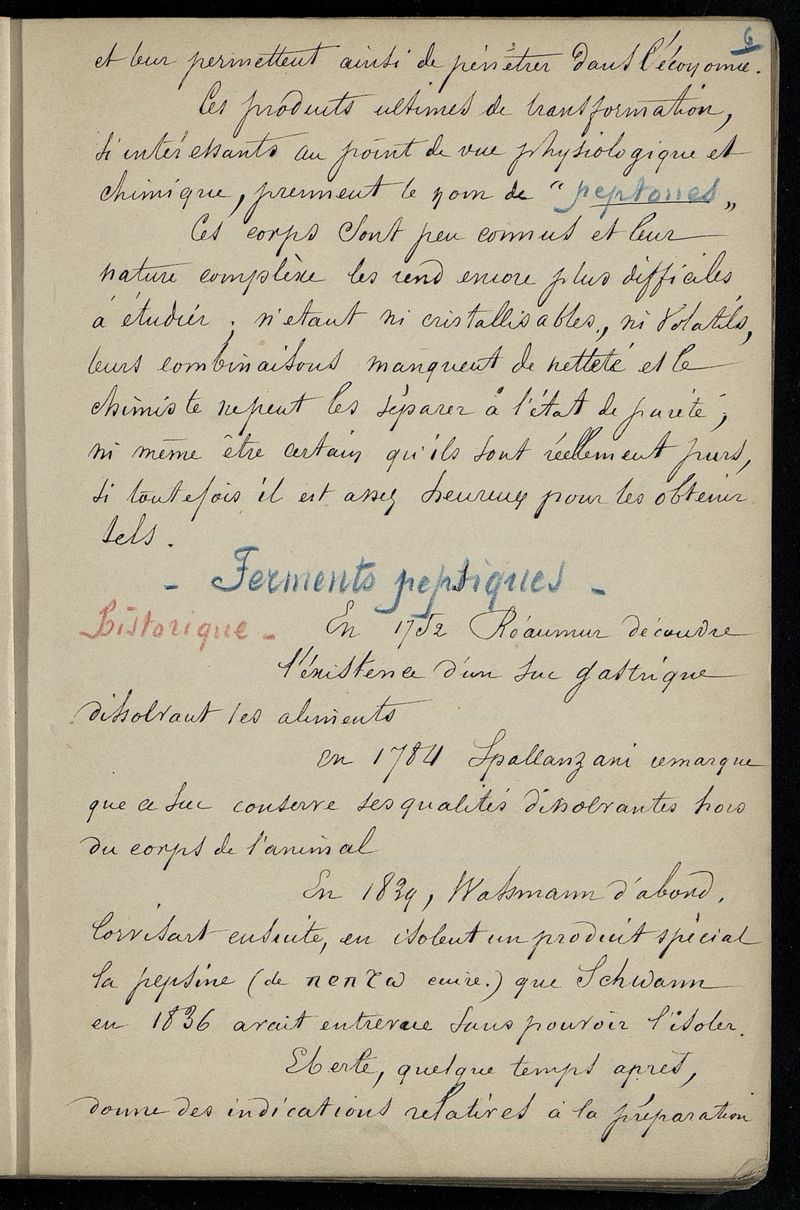 6
et leur permettent ainsi de pénétrer dans l'économie.
Ces produits ultimes de transformation,
si intéressants au point de vue physiologique et
chimique, prennent le nom de "peptones„
Ces corps sont peu connus et leur
nature complèxe les rend encore plus difficiles
à étudier ; n'etant ni cristallisables, ni volatils,
leurs combinaisons manquent de netteté et le
chimiste ne peut les séparer à l'état de pureté,
ni même être certain qu'ils sont réellement purs,
si toutefois il est assez heureux pour les obtenir
tels.
- Ferments peptiques -
Historique - En 1752 Réaumur découvre
l'éxistence d'un suc gastrique
dissolvant les aliments
en 1784 Spallanzani remarque
que ce suc conserve ses qualités dissolvantes hors
du corps de l'animal
En 1839, Wassmann d'abord,
Corvisart ensuite, en isolent un produit spécial
la pepsine (de πεπτω cuire.) que Schwann
en 1836 avait entrevue sans pouvoir l'isoler.
Eberlé, quelque temps après,
donne des indications relatives à la préparation